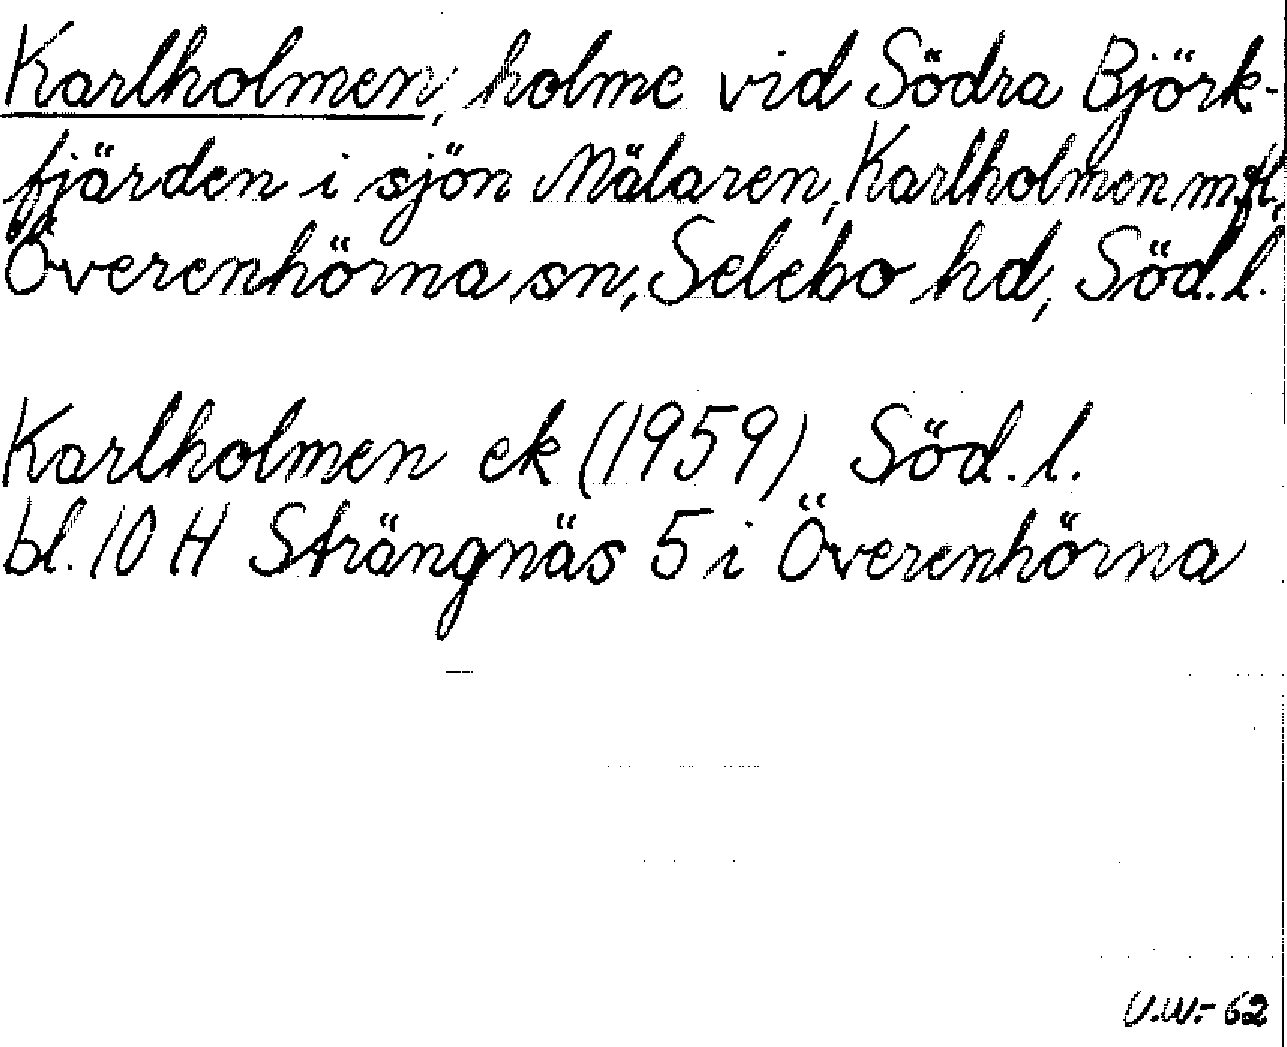 Karlholmen, holme vid Södra Björk-
fjärden i sjön Mälaren, Karlholmen m.fl.,
Överenhörna sn, Selebo hd, Söd.l.
Karlholmen ek (1959) Söd.l.
bl. 10 H Strängnäs 5 i Överenhörna
U.W.- 62